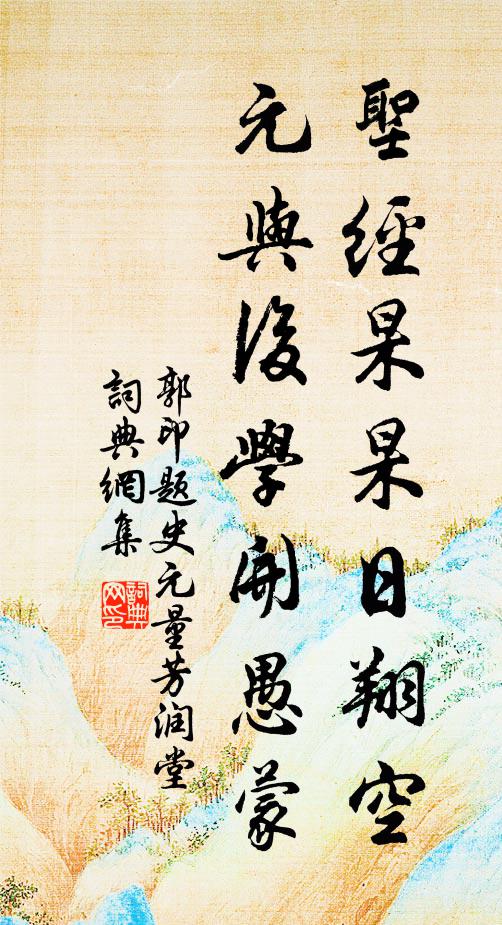 聖經杲杲日翔空
元與後學開愚蒙
郭印題史元量芳润堂
詞典網集
詞典網印